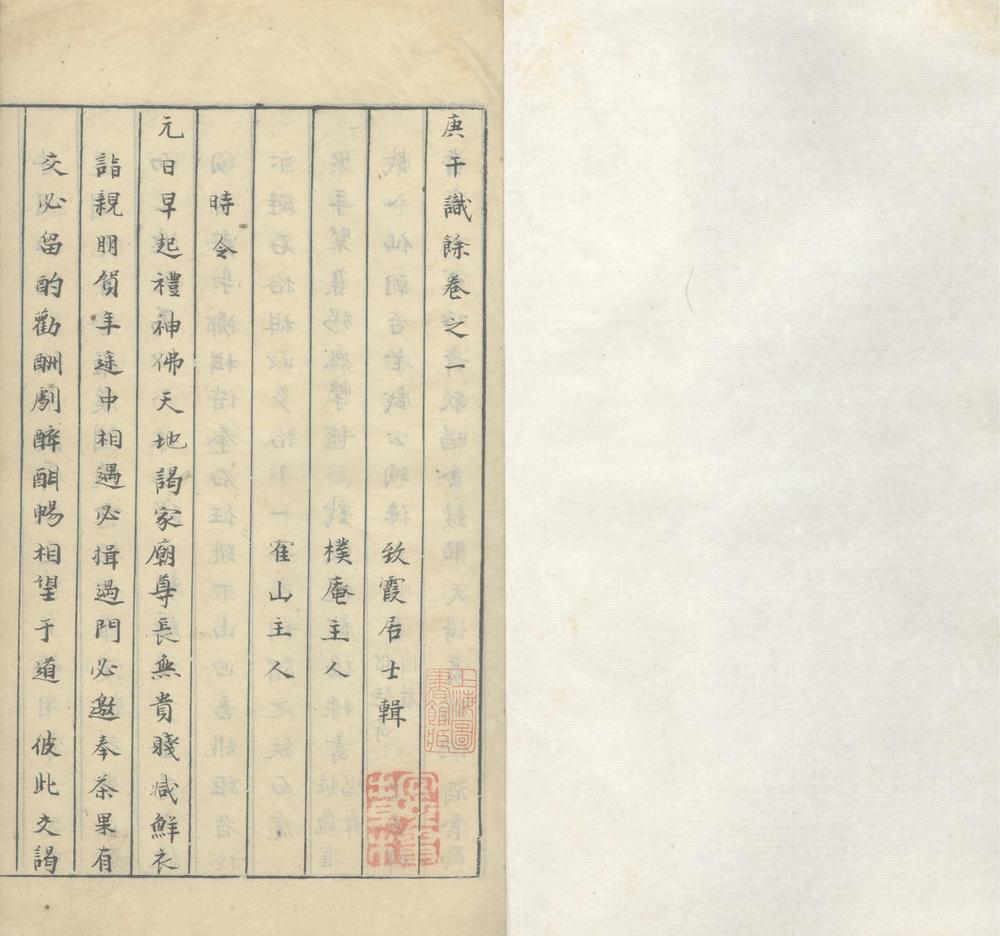 庚午識餘卷之一
致霞居士輯
樸庵主人
寉山主人
時令
元日早起禮神佛天地謁家廟尊長無貴賤咸鮮衣
詣親朋賀年途中相遇必揖過門必邀奉茶果有
交必留酌勸酬劇醉酣暢相望于道彼此交謁
上海圖書館藏